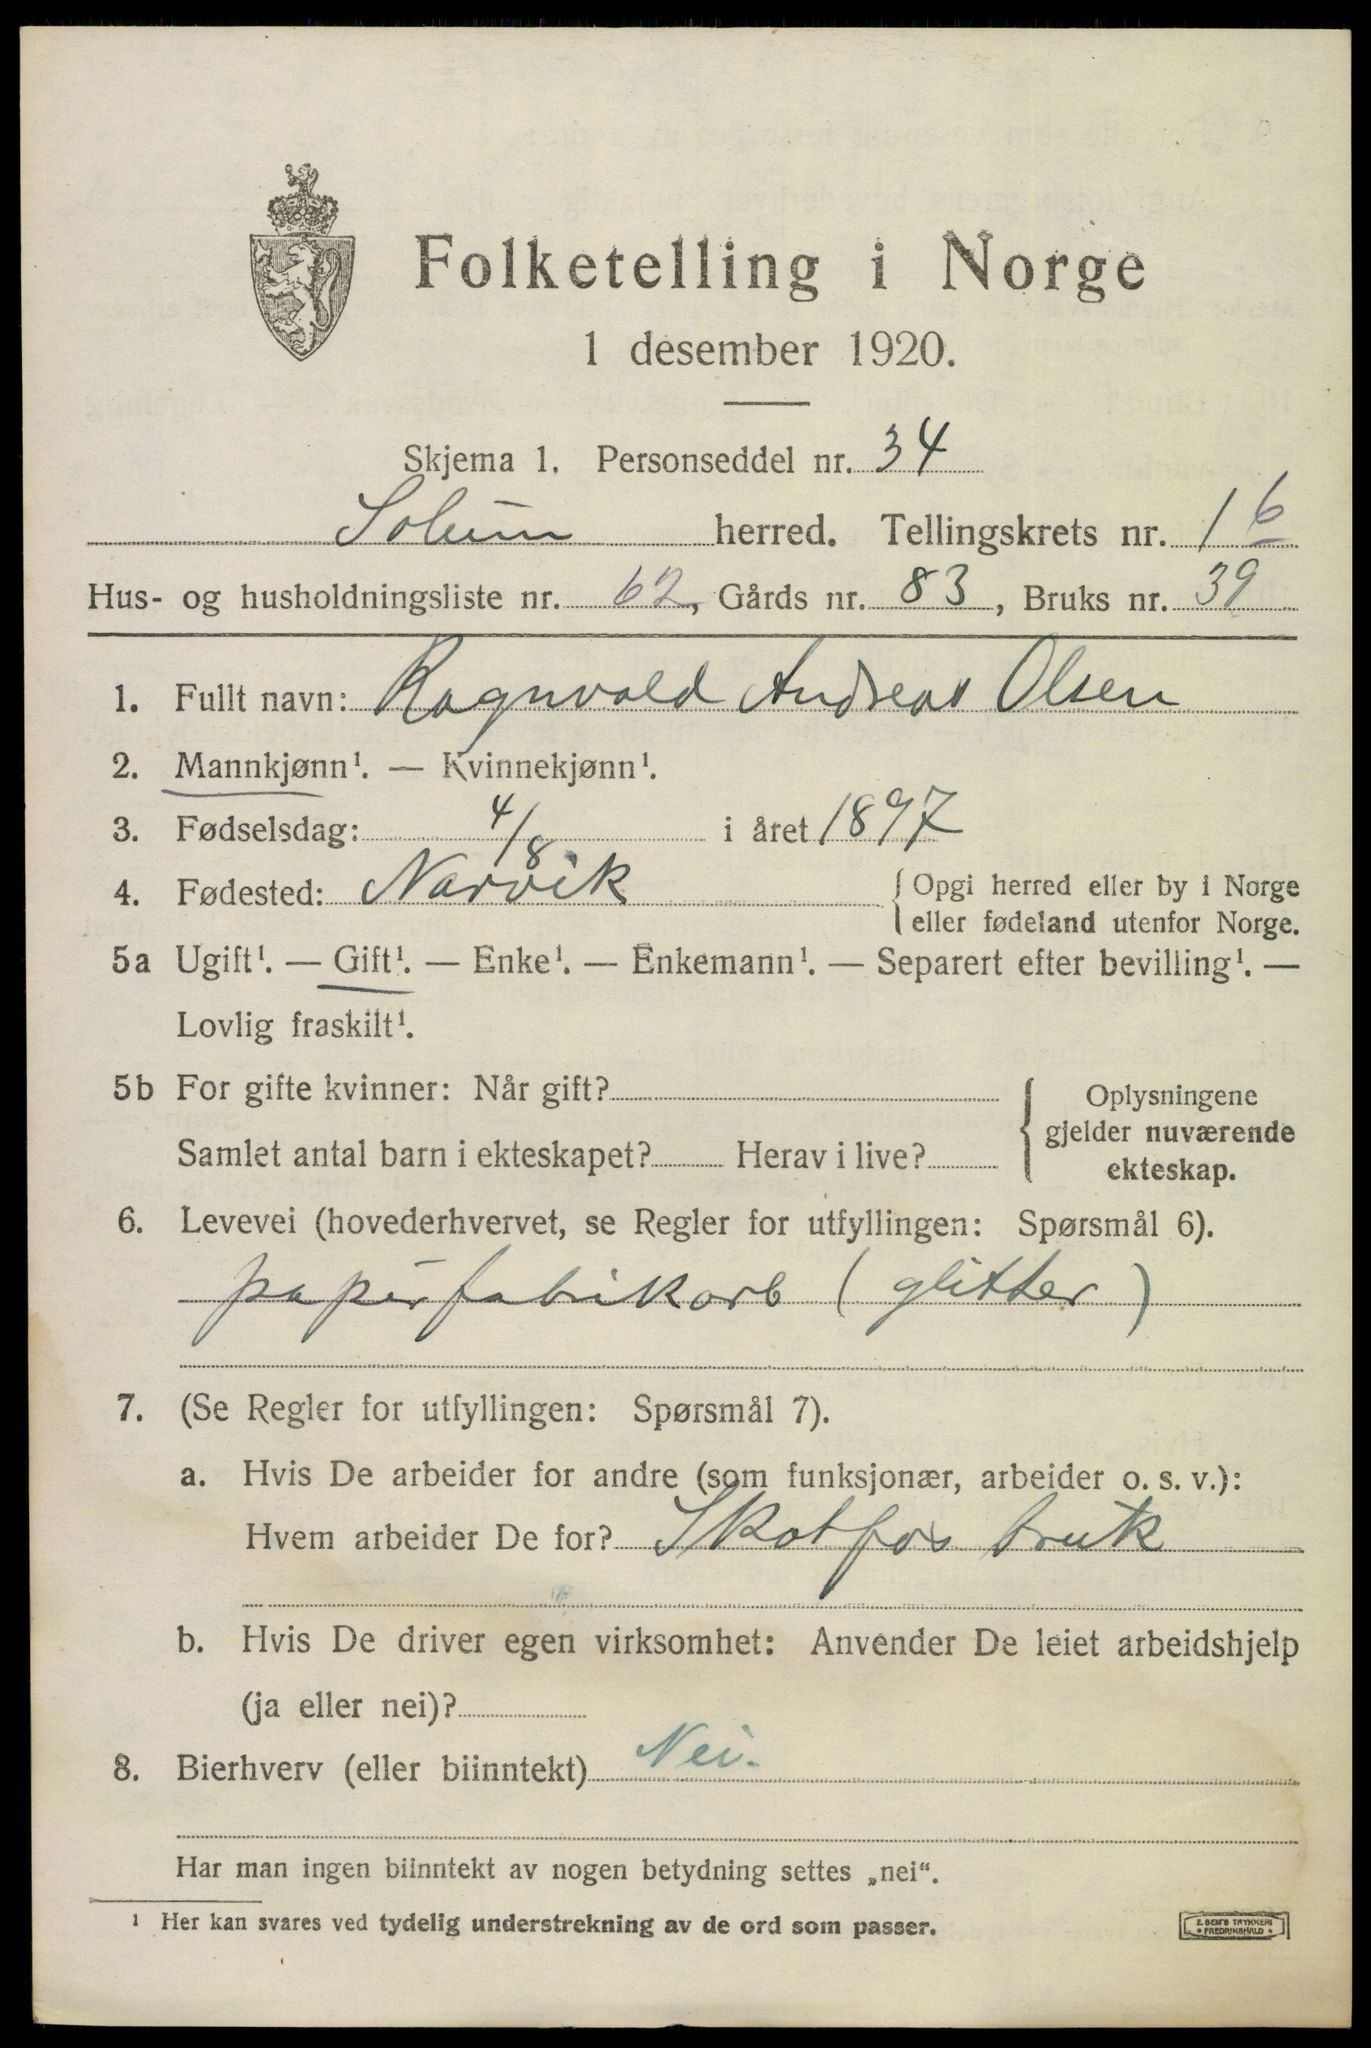 Folketelling i Norge
1 desember 1920.
Skjema 1. Personseddel nr. 34
Solum herred. Tellingskrets nr. 16
Hus- og husholdningsliste nr. 62, Gårds nr. 83, Bruks nr. 39
1. Fullt navn: Ragnvald Andreas Olsen
2. Mannkjønn¹. — Kvinnekjønn¹.
3. Fødselsdag: 4/8 i året 1897
4. Fødested: Narvik { Opgi herred eller by i Norge
eller fødeland utenfor Norge.
5a Ugift¹. — Gift¹. — Enke¹. — Enkemann¹. — Separert efter bevilling¹. —
Lovlig fraskilt¹.
5b For gifte kvinner: Når gift?
Samlet antal barn i ekteskapet? Herav i live?
{ Oplysningene
gjelder nuværende
ekteskap.
6. Levevei (hovederhvervet, se Regler for utfyllingen: Spørsmål 6).
papirfabrikarb (glitter)
7. (Se Regler for utfyllingen: Spørsmål 7).
a. Hvis De arbeider for andre (som funksjonær, arbeider o. s. v.):
Hvem arbeider De for? Skotfos bruk
b. Hvis De driver egen virksomhet: Anvender De leiet arbeidshjelp
(ja eller nei)?
8. Bierhverv (eller biinntekt) Nei.
Har man ingen biinntekt av nogen betydning settes „nei“.
¹ Her kan svares ved tydelig understrekning av de ord som passer.
E. SEM'S TRYKKERI
FREDRIKSHALD